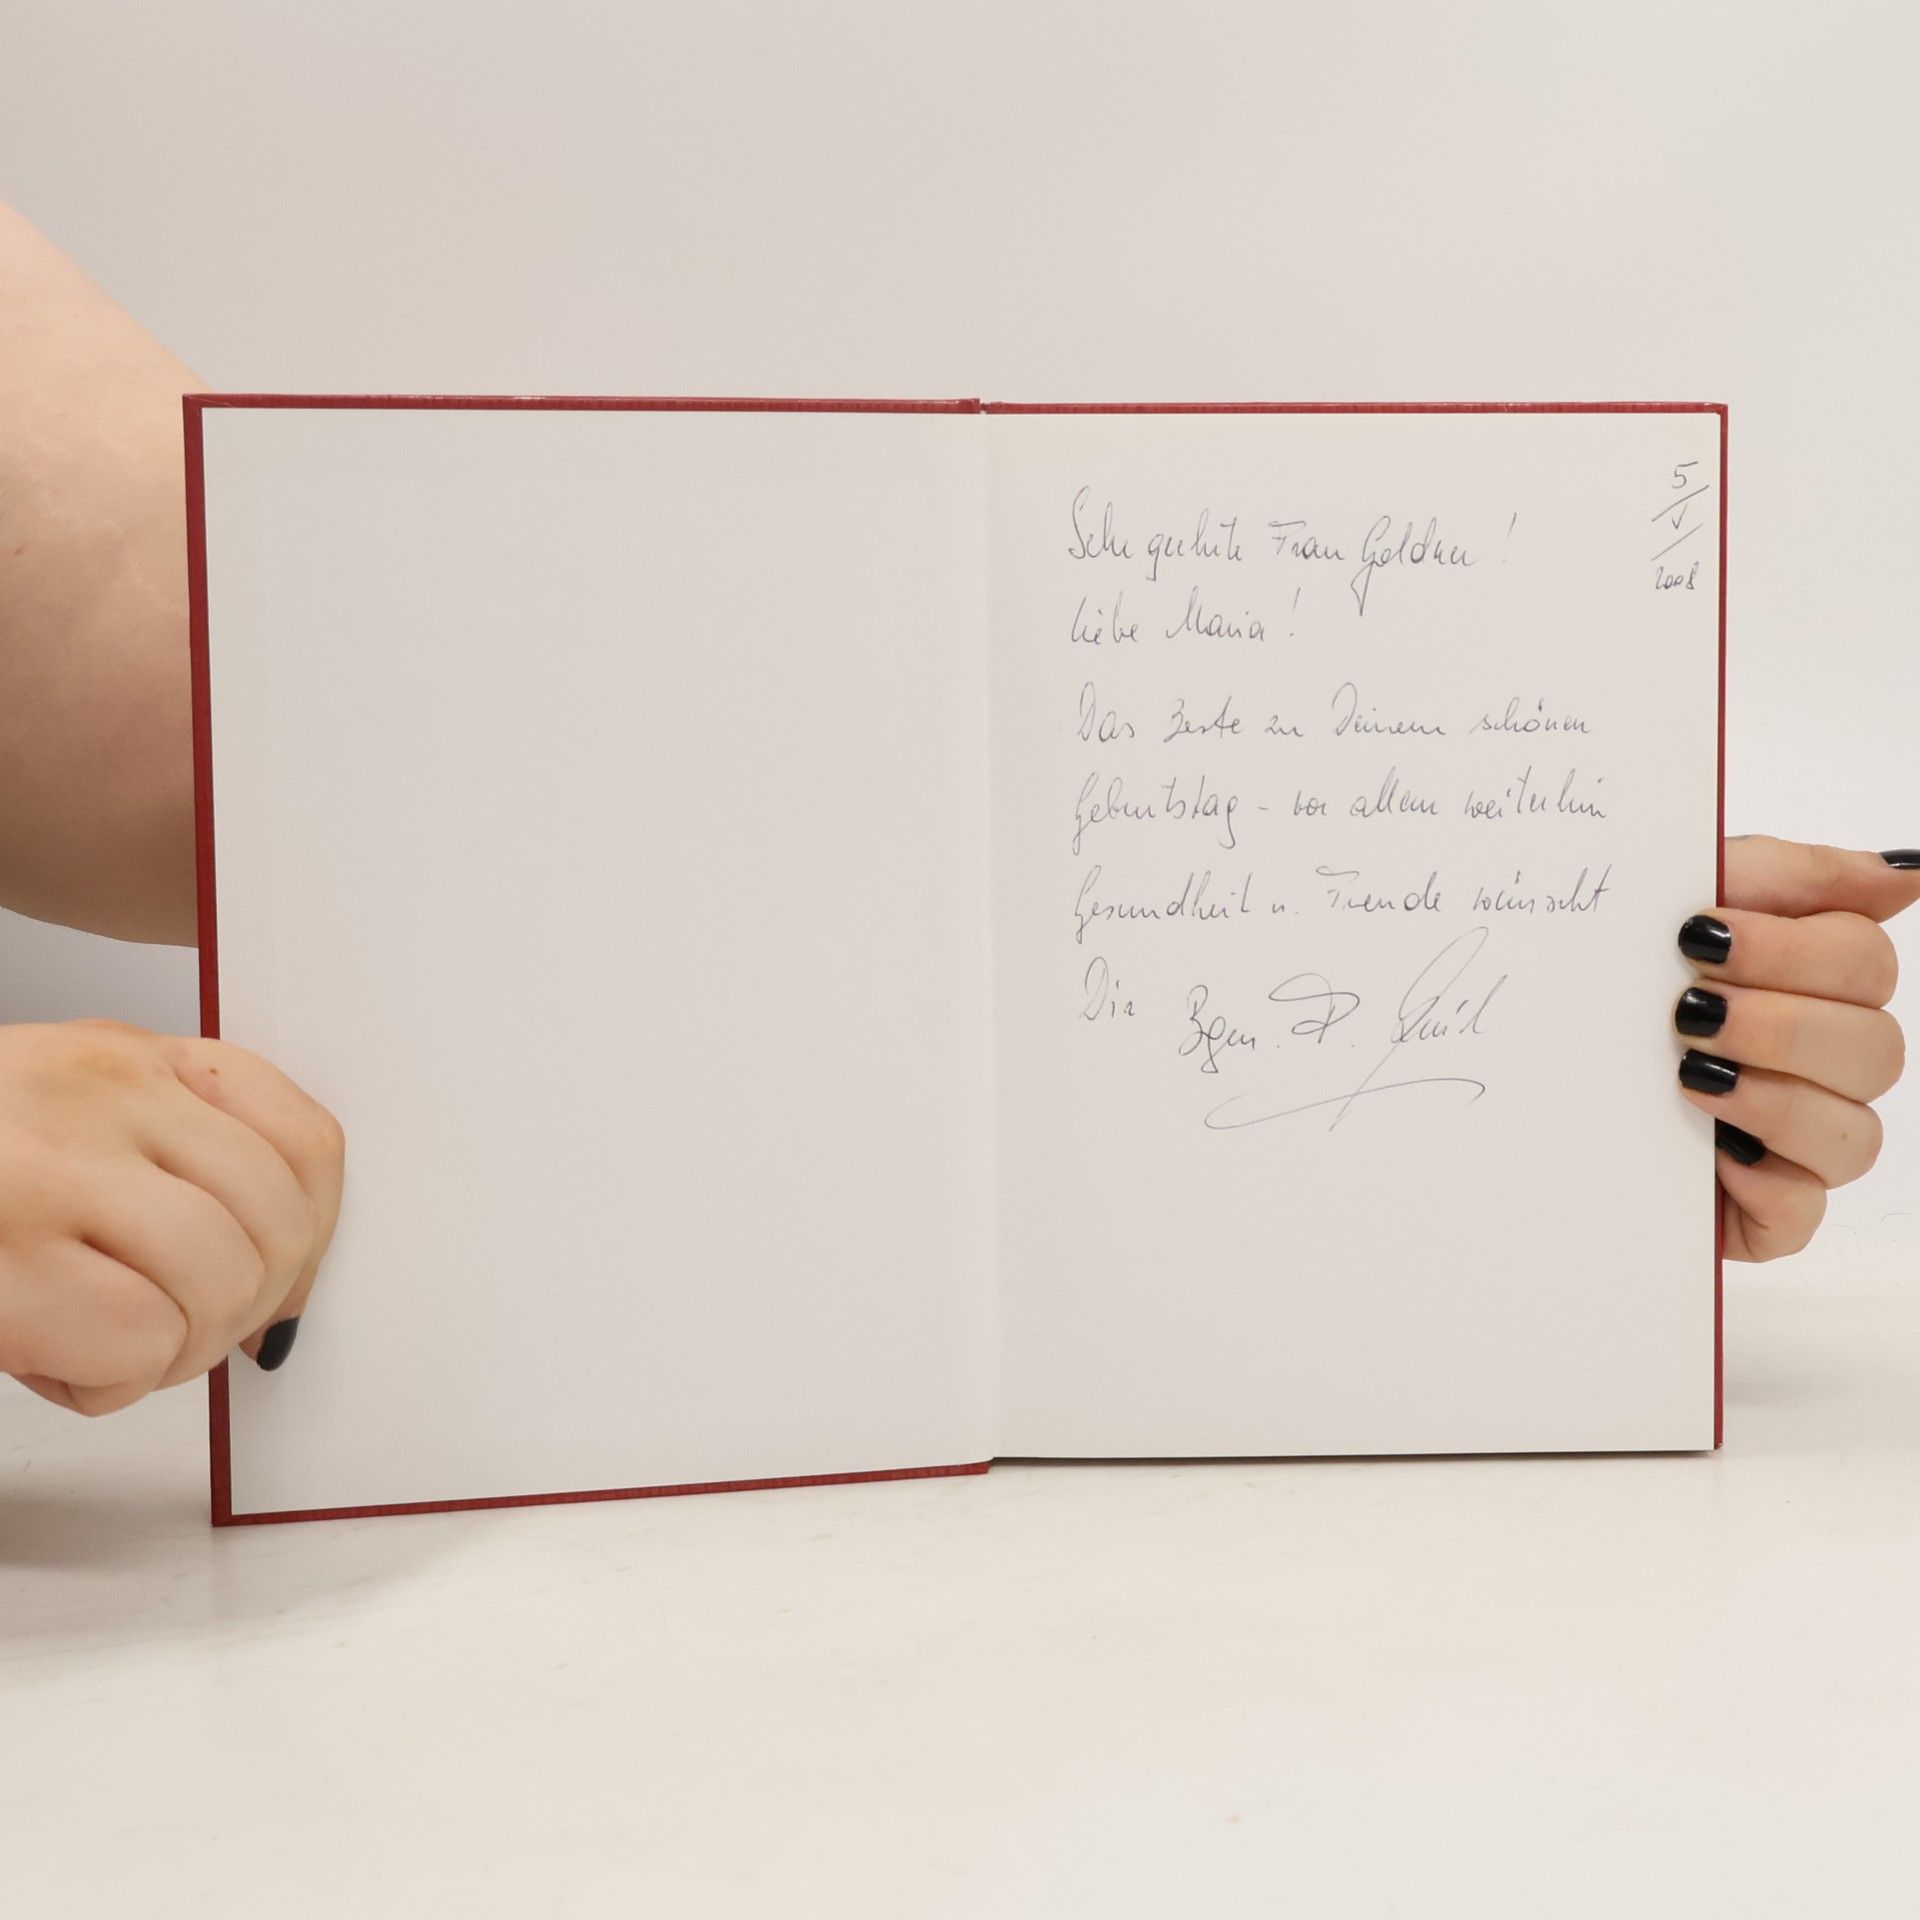 5
/
V
/
2008
Sehr geehrte Frau Goldner!
Liebe Maria!
Das Beste zu Deinem schönen
Geburtstag - vor allem weiterhin
Gesundheit u. Freude wünscht
Dir Bgm.